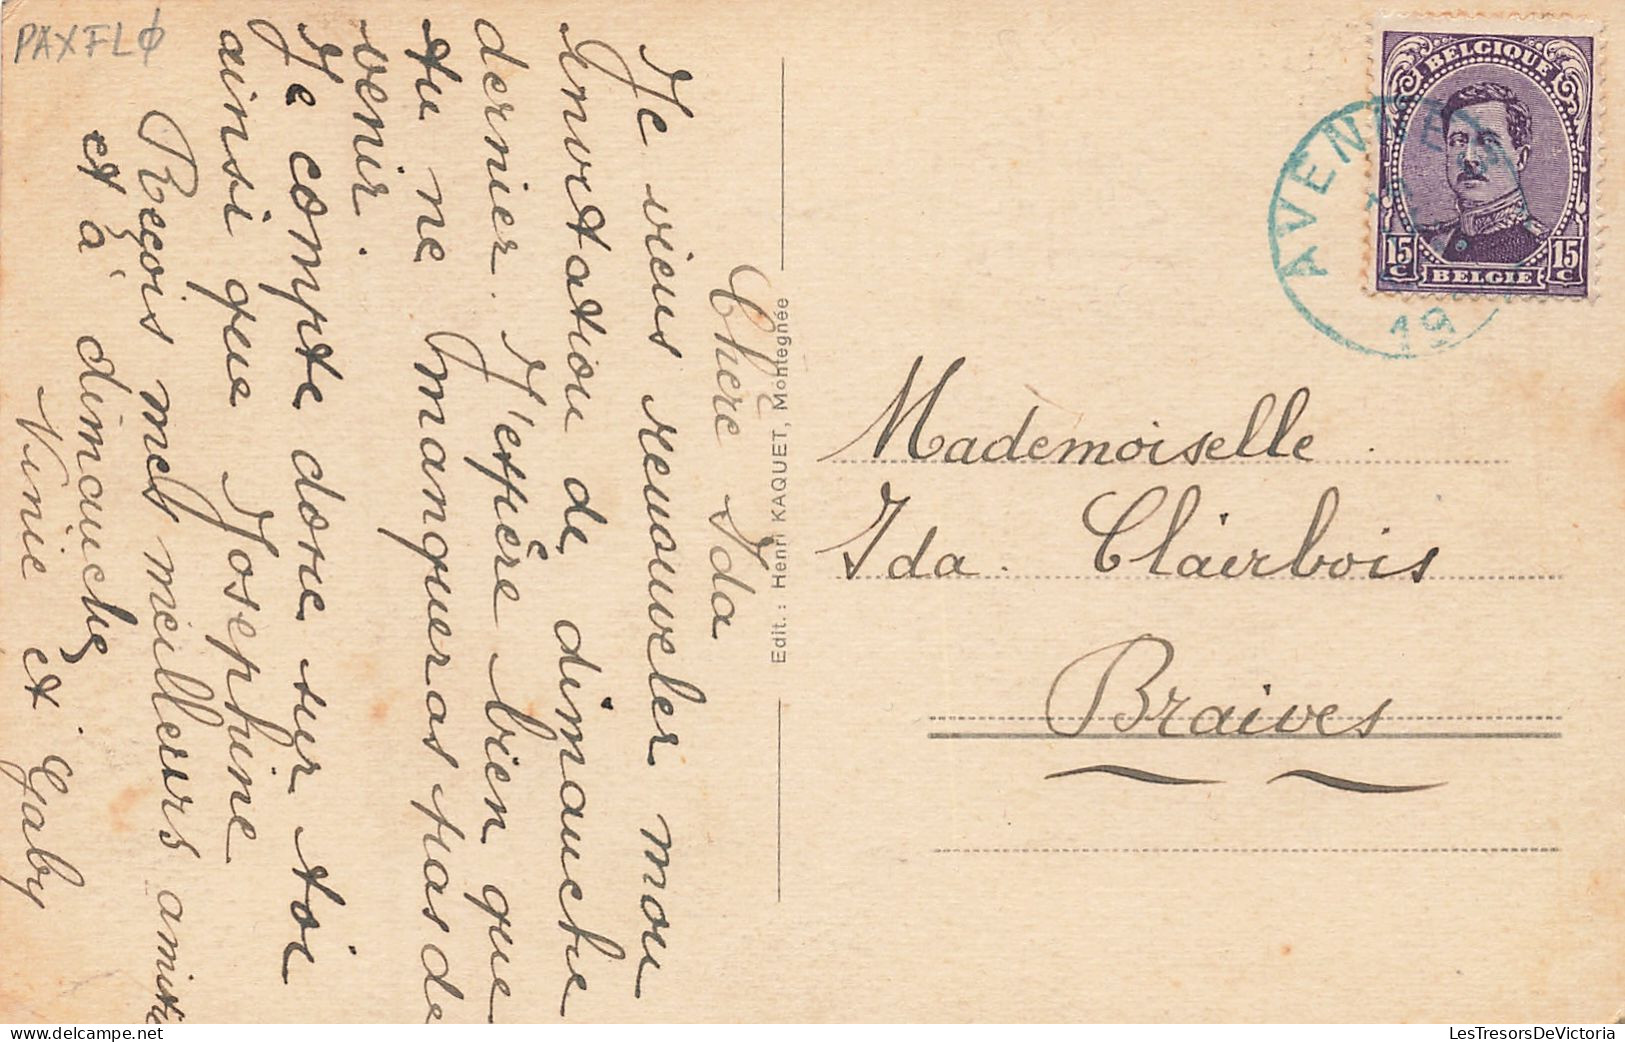 PAXFLØ
Chère Ida
Je viens renouveler mon
invitation de dimanche
dernier. J'espère bien que
tu ne manqueras pas de
venir.
Je compte donc sur toi
ainsi que Josephine
Reçois mes meilleurs amitiés
et à dimanche
Ninie et Gaby
Edit.: Henri KAQUET, Montegnée
BELGIQUE
15 C
15 C
BELGIE
AVENNES
19
Mademoiselle
Ida Clairbois
Braives
LesTresorsDeVictoria.com